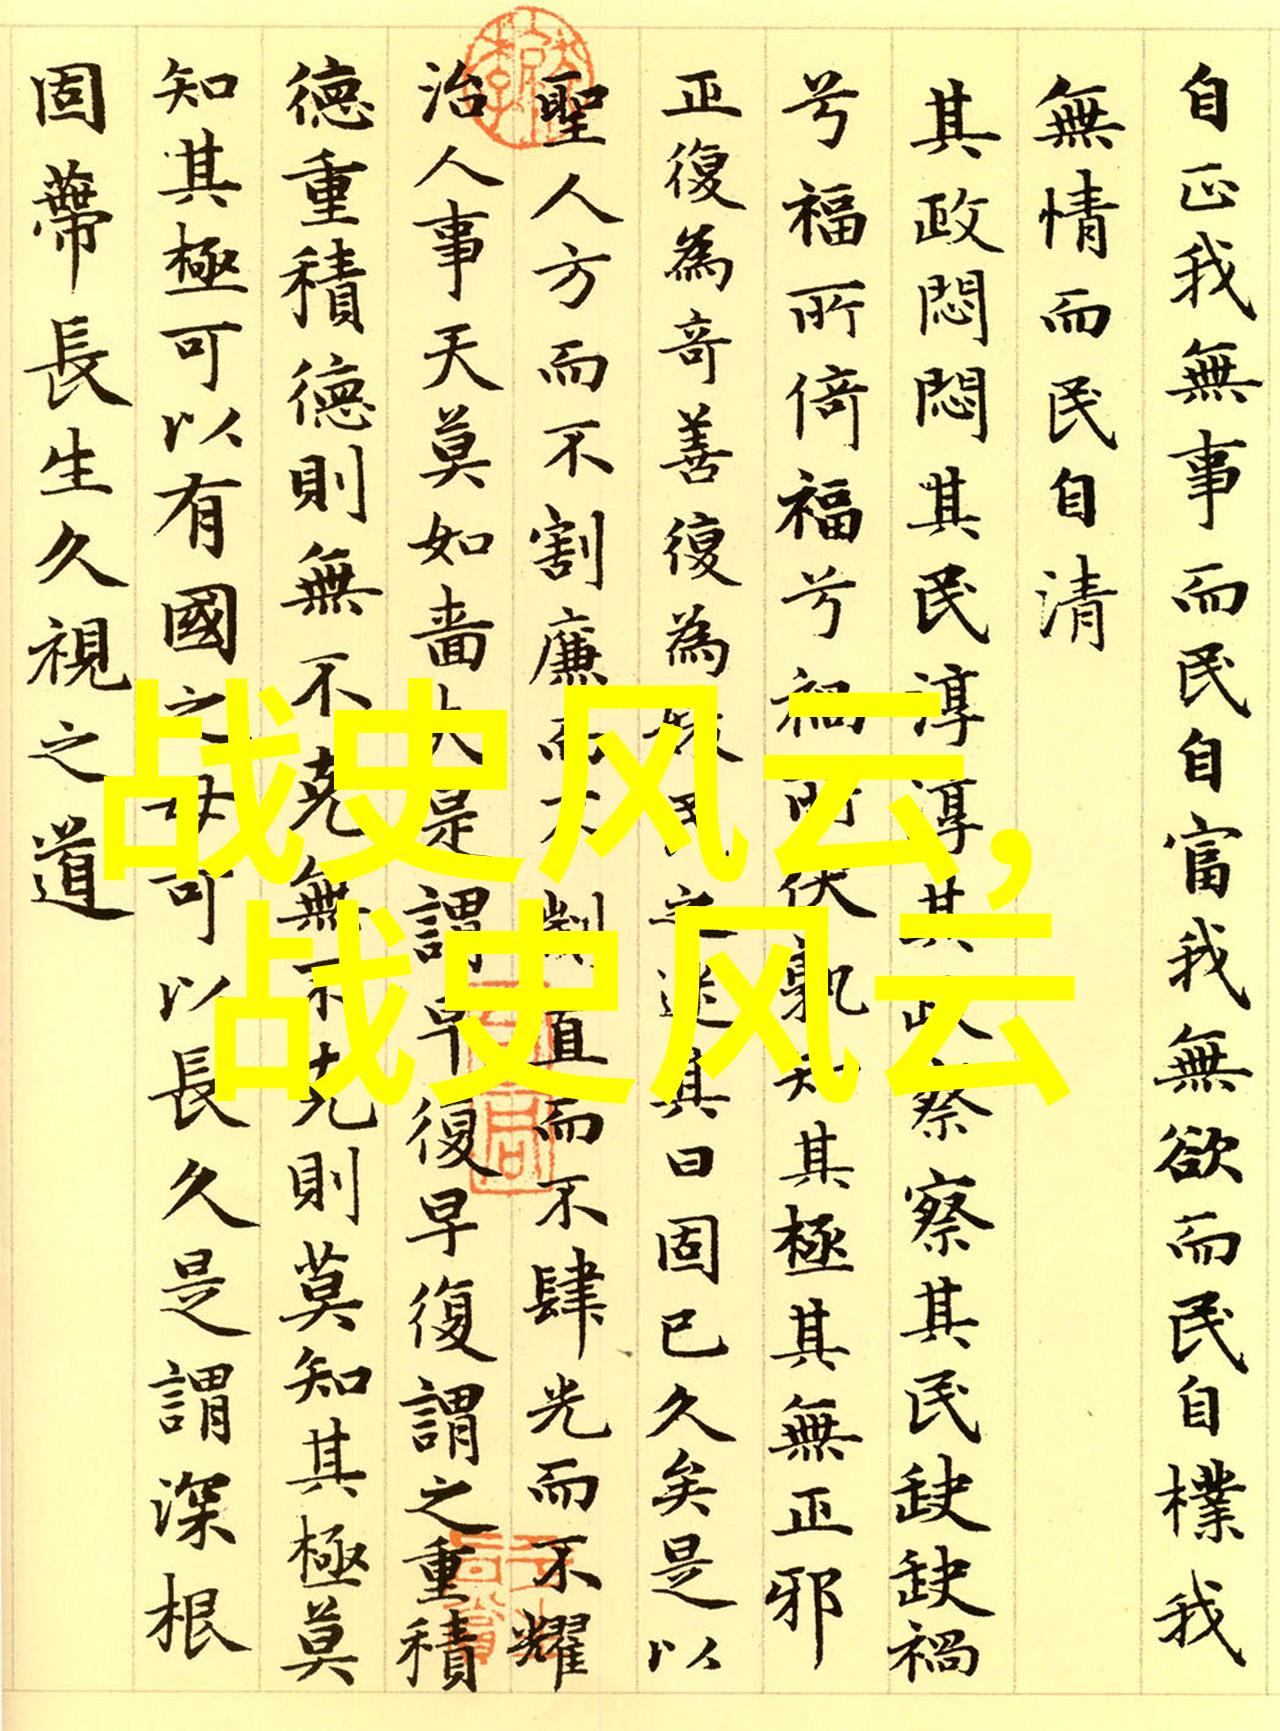 自正我無事而民自富我無欲而民自樸我
無情而民自清
其政悶悶其民淳淳其政察察其民缺缺禍
兮福所倚福兮禍所伏孰知其極其無正邪
正復為奇善復為妖民之迷其日固已久矣是以
聖人方而不割廉而不劌直而不肆光而不耀
治人事天莫如嗇夫是謂早復早復謂之重積
德重積德則無不克無不克則莫知其極莫
知其極可以有國之母可以長久是謂深根
固蔕長生久視之道
战史风云，
战史风云